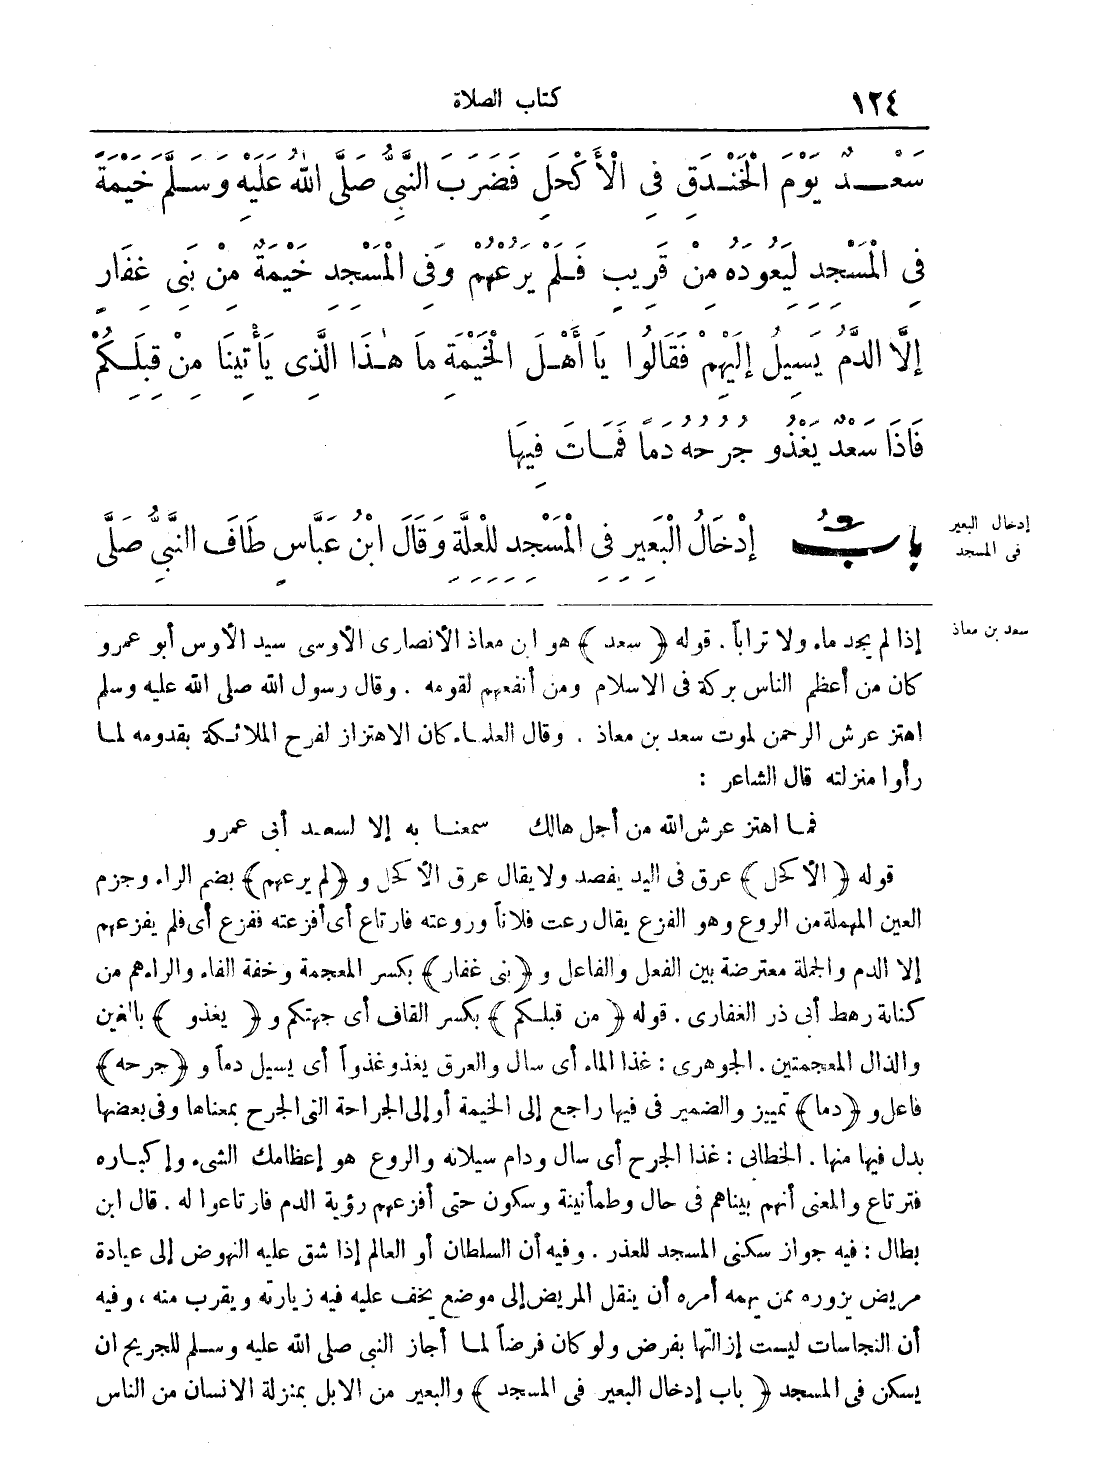 ١٢٤
كتاب الصلاة
سَعْدٌ يَوْمَ الْخَنْدَقِ فِي الْأَكْحَلِ فَضَرَبَ النَّبِيُّ صَلَّى اللهُ عَلَيْهِ وَسَلَّمَ خَيْمَةً
فِي الْمَسْجِدِ لِيَعُودَهُ مِنْ قَرِيبٍ فَلَمْ يَرُعْهُمْ وَفِي الْمَسْجِدِ خَيْمَةٌ مِنْ بَنِي غِفَارٍ
إِلَّا الدَّمُ يَسِيلُ إِلَيْهِمْ فَقَالُوا يَا أَهْلَ الْخَيْمَةِ مَا هٰذَا الَّذِي يَأْتِينَا مِنْ قِبَلِكُمْ
فَاذَا سَعْدٌ يَغْذُو جُرْحُهُ دَمًا فَمَاتَ فِيهَا
بابُ إِدْخَالُ الْبَعِيرِ فِي الْمَسْجِدِ لِلْعِلَّةِ وَقَالَ ابْنُ عَبَّاسٍ طَافَ النَّبِيُّ صَلَّى
إدخال البعير
في المسجد
سعد بن معاذ
إذا لم يجد ماء ولا تراباً . قوله ﴿ سعد ﴾ هو ابن معاذ الأنصارى الأوسى سيد الأوس أبو عمرو
كان من أعظم الناس بركة فى الاسلام ومن أنفعهم لقومه . وقال رسول الله صلى الله عليه وسلم
اهتز عرش الرحمن لموت سعد بن معاذ . وقال العلماء كان الاهتزاز لفرح الملائكة بقدومه لما
رأوا منزلته قال الشاعر :
فما اهتز عرش الله من أجل هالك سمعنا به إلا لسعد أبى عمرو
قوله ﴿ الأكحل ﴾ عرق فى اليد يفصد ولا يقال عرق الأكحل و ﴿لم يرعهم﴾ بضم الراء وجزم
العين المهملة من الروع وهو الفزع يقال رعت فلاناً وروعته فارتاع أى أفزعته ففزع أى فلم يفزعهم
إلا الدم والجملة معترضة بين الفعل والفاعل و ﴿بنى غفار﴾ بكسر المعجمة وخفة الفاء والراء هم من
كنانة رهط أبى ذر الغفارى . قوله ﴿ من قبلكم ﴾ بكسر القاف أى جهتكم و ﴿ يغذو ﴾ بالغين
والذال المعجمتين . الجوهرى : غذا الماء أى سال والعرق يغذو غذواً أى يسيل دماً و ﴿جرحه﴾
فاعل و ﴿دما﴾ تمييز والضمير فى فيها راجع إلى الخيمة أو إلى الجراحة التى الجرح بمعناها وفى بعضها
بدل فيها منها . الخطابى : غذا الجرح أى سال ودام سيلانه والروع هو إعظامك الشىء وإكباره
فترتاع والمعنى أنهم بيناهم فى حال وطمأنينة وسكون حتى أفزعهم رؤية الدم فارتاعوا له . قال ابن
بطال : فيه جواز سكنى المسجد للعذر . وفيه أن السلطان أو العالم إذا شق عليه النهوض إلى عيادة
مريض يزوره ممن يهمه أمره أن ينقل المريض إلى موضع يخف عليه فيه زيارته ويقرب منه ، وفيه
أن النجاسات ليست إزالتها بفرض ولو كان فرضاً لما أجاز النبى صلى الله عليه وسلم للجريح ان
يسكن فى المسجد ﴿ باب إدخال البعير فى المسجد ﴾ والبعير من الابل بمنزلة الانسان من الناس